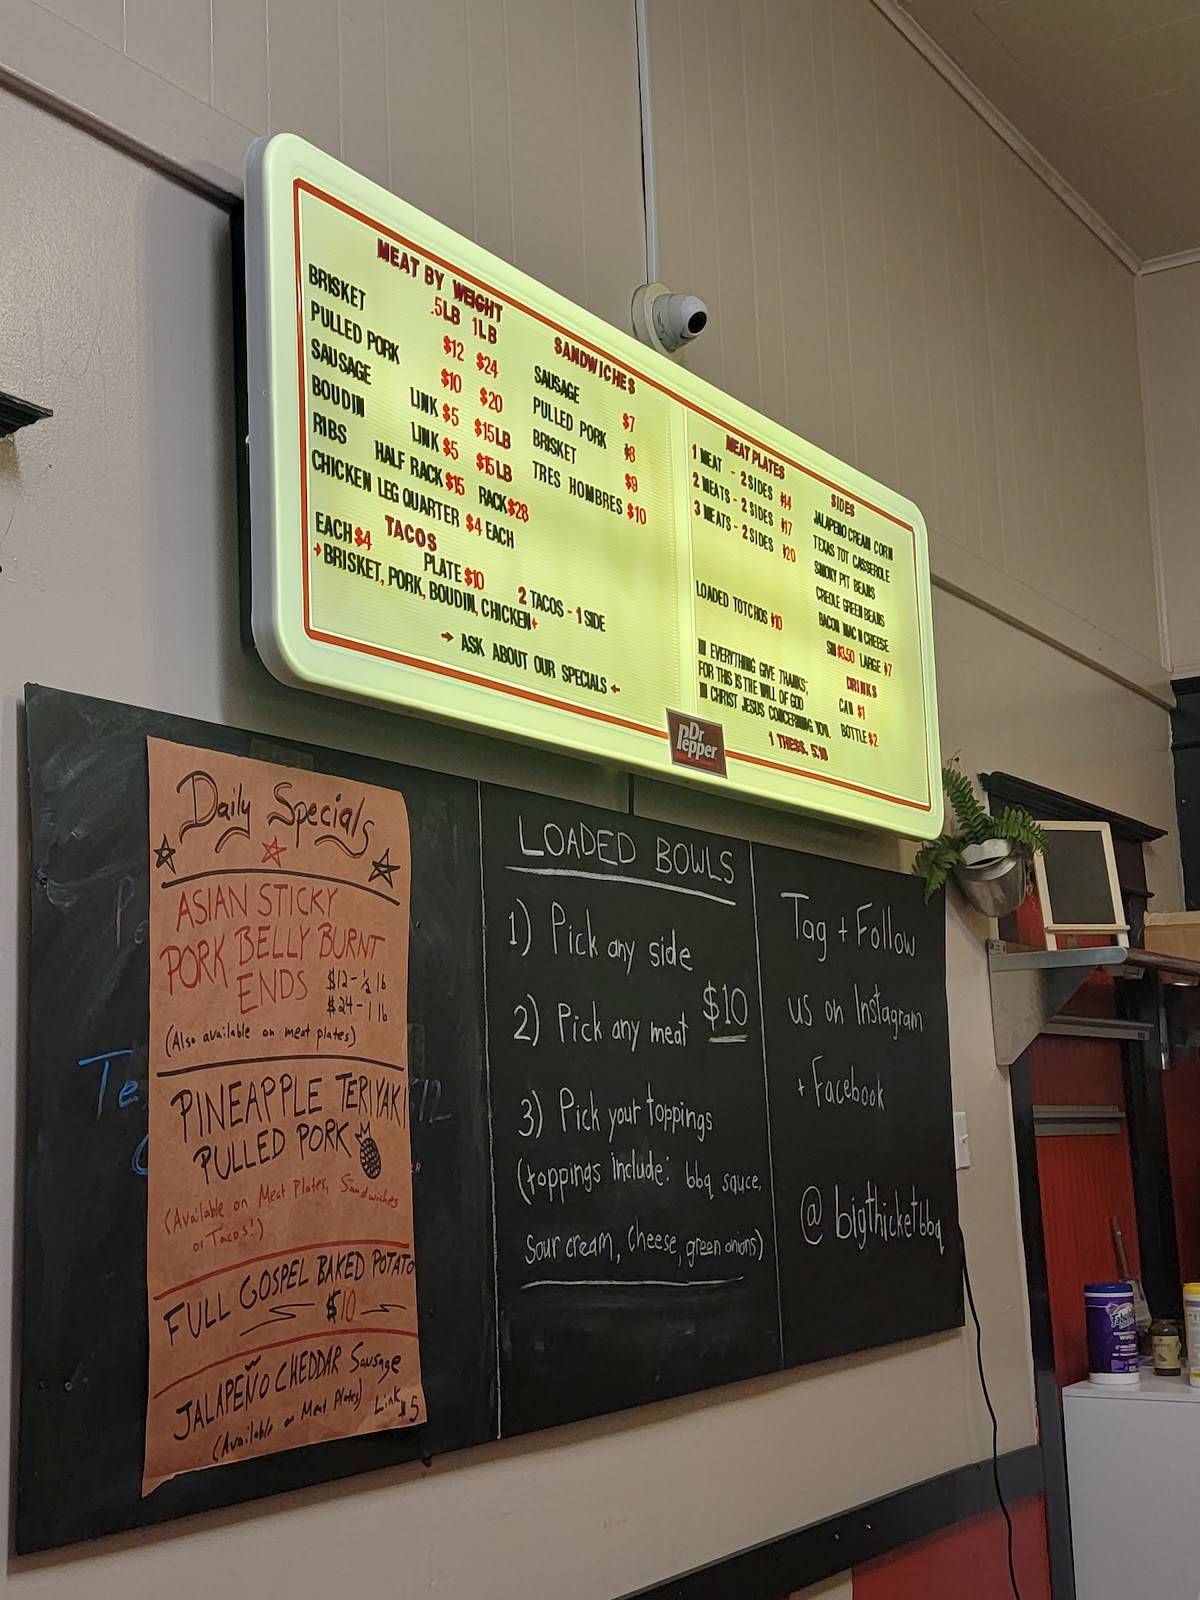 MEAT BY WEIGHT
.5LB 1LB
BRISKET $12 $24
PULLED PORK $10 $20
SAUSAGE LINK $5 $15LB
BOUDIN LINK $5 $15LB
RIBS HALF RACK $15 RACK $28
CHICKEN LEG QUARTER $4 EACH
TACOS
EACH $4 PLATE $10 2 TACOS - 1 SIDE
BRISKET, PORK, BOUDIN, CHICKEN
→ ASK ABOUT OUR SPECIALS ←
SANDWICHES
SAUSAGE $7
PULLED PORK $8
BRISKET $9
TRES HOMBRES $10
MEAT PLATES
1 MEAT - 2 SIDES $14
2 MEATS - 2 SIDES $17
3 MEATS - 2 SIDES $20
LOADED TOTCHOS $10
IN EVERYTHING GIVE THANKS;
FOR THIS IS THE WILL OF GOD
IN CHRIST JESUS CONCERNING YOU.
1 THESS. 5:18
SIDES
JALAPENO CREAM CORN
TEXAS TOT CASSEROLE
SMOKY PIT BEANS
CREOLE GREEN BEANS
BACON MAC N CHEESE
SM $3.50 LARGE $7
DRINKS
CAN $1
BOTTLE $2
Dr
Pepper
Daily Specials
ASIAN STICKY
PORK BELLY BURNT
ENDS $12 - ½ lb
$24 - 1 lb
(Also available on meat plates)
PINEAPPLE TERIYAKI
PULLED PORK
(Available on Meat Plates, Sandwiches
or Tacos!)
FULL GOSPEL BAKED POTATO
$10
JALAPEÑO CHEDDAR Sausage
(Available on Meat Plates) Link $5
Te
LOADED BOWLS
1) Pick any side
2) Pick any meat $10
3) Pick your toppings
(toppings include: bbq sauce,
sour cream, cheese, green onions)
Tag + Follow
us on Instagram
+ Facebook
@bigthicketbbq